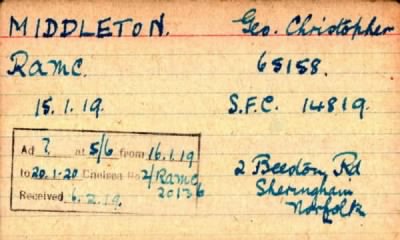 MIDDLETON. Geo. Christopher
RAMC. 65158.
15.1.19. S.F.C. 14819.
Ad ? at 5/6 from 16.1.19
to 20.1.20 Chelsea No 2/RAMC
20136
Received 6.2.19.
2 Beeston Rd
Sheringham
Norfolk